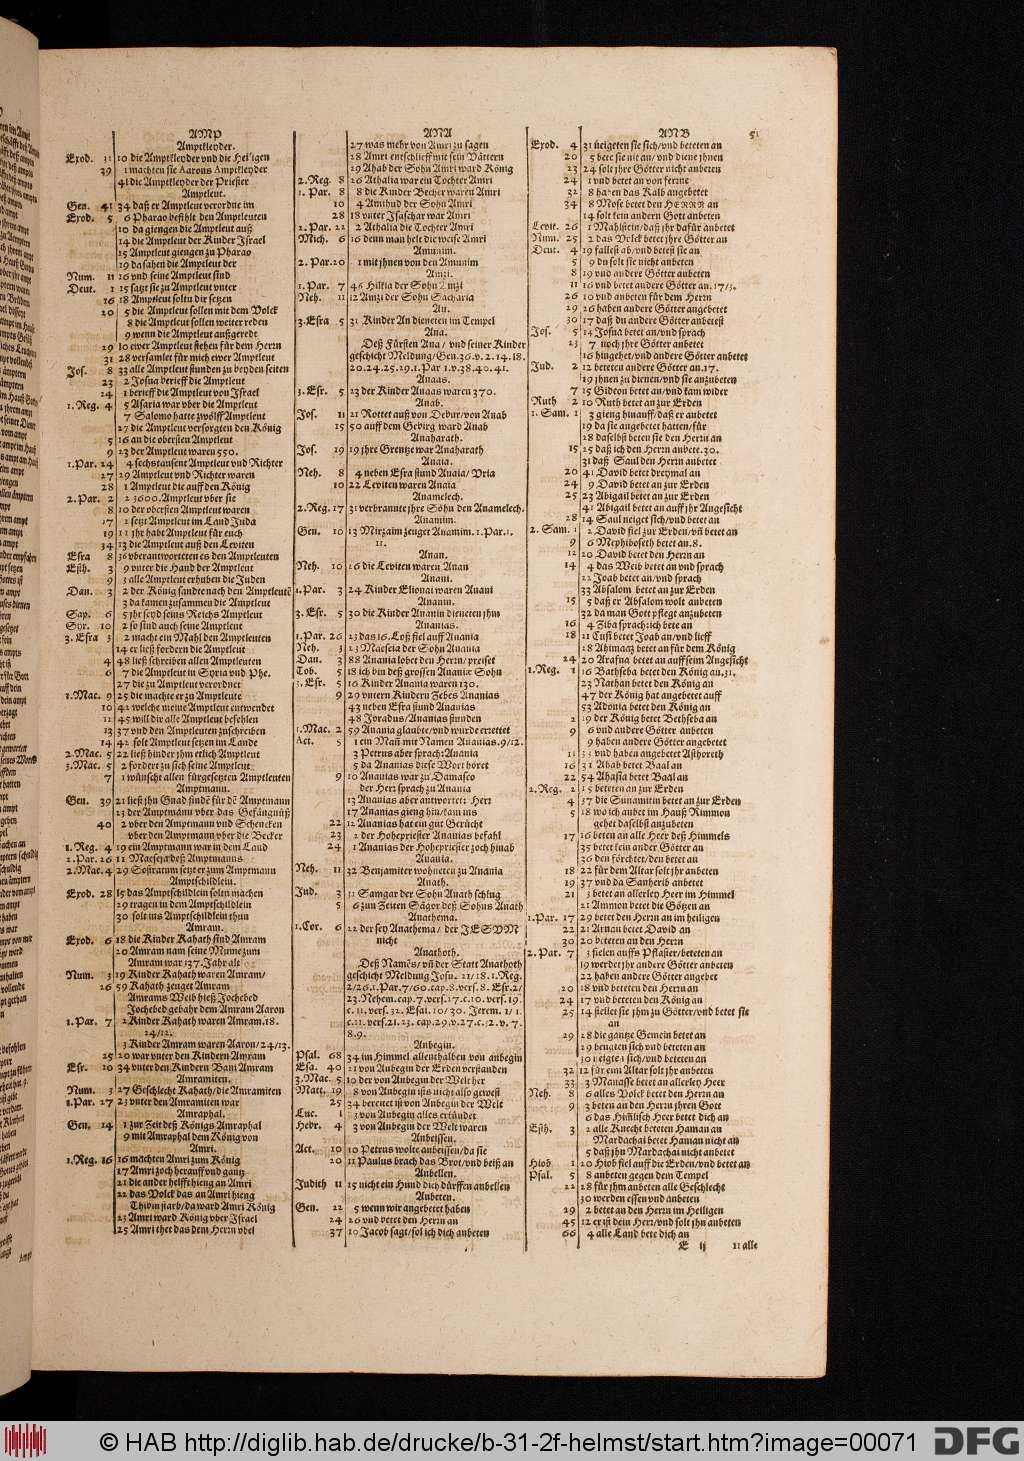 AMP
Amptkleyder.
Exod. 31 10 die Amptkleyder vnd die Heiligen
39 1 machten sie Aarons Amptkleyder
41 die Amptkleyder der Priester
Amptleut.
Gen. 41 34 daß er Amptleut verordne im
Exod. 5 6 Pharao befihlt den Amptleuten
10 da giengen die Amptleut auß
14 die Amptleut der Kinder Israel
15 Amptleut giengen zu Pharao
19 da sahen die Amptleut der
Num. 11 16 vnd seine Amptleut sind
Deut. 1 15 satzt sie zu Amptleut vnter
16 18 Amptleut soltu dir setzen
20 5 die Amptleut sollen mit dem Volck
8 die Amptleut sollen weiter reden
9 wenn die Amptleut außgeredt
29 10 ewer Amptleut stehen für dem Herrn
31 28 versamlet für mich ewer Amptleut
Jos. 8 33 alle Amptleut stunden zu beyden seiten
23 2 Josua berieff die Amptleut
24 1 berieff die Amptleut von Israel
1. Reg. 4 5 Asaria war vber die Amptleut
7 Salomo hatte zwölff Amptleut
27 die Amptleut versorgten den König
5 16 an die obersten Amptleut
9 23 der Amptleut waren 550.
1. Par. 24 4 sechstausent Amptleut vnd Richter
27 29 Amptleut vnd Richter waren
28 1 Amptleut die auff den König
2. Par. 2 2 3600. Amptleut vber sie
8 10 der obersten Amptleut waren
17 2 setzt Amptleut im Land Juda
19 11 jhr habt Amptleut für euch
34 13 die Amptleut auß den Leviten
Esra 8 36 vberantworteten es den Amptleuten
Esth. 3 9 vnter die Hand der Amptleut
9 3 alle Amptleut erhuben die Juden
Dan. 3 2 der König sandte nach den Amptleutē
3 da kamen zusammen die Amptleut
Sap. 6 5 jhr seyd seines Reichs Amptleut
Syr. 10 2 so sind auch seine Amptleut
3. Esra 3 2 macht ein Mahl den Amptleuten
14 er ließ fordern die Amptleut
4 48 ließ schreiben allen Amptleuten
6 7 die Amptleut in Syria vnd Phe.
27 die zu Amptleut verordnet
1. Mac. 9 25 die machte er zu Amptleute
10 41 welche meine Amptleut entwendet
11 45 will dir alle Amptleut befehlen
13 37 vnd den Amptleuten zuschreiben
14 42 solt Amptleut setzen im Lande
2. Mac. 5 22 ließ hinder jhm etlich Amptleut
3. Mac. 5 2 fordert zu sich seine Amptleut
7 1 wünscht allen fürgesetzten Amptleuten
Amptmann.
Gen. 39 21 ließ jhn Gnad findē für dē Amptmann
23 der Amptmann vber das Gefängnüß
40 2 vber den Amptmann vnd Schencken
vber den Amptmann vber die Becker
1. Reg. 4 19 ein Amptmann war in dem Land
2. Par. 26 11 Maeseja deß Amptmanns
2. Mac. 4 29 Sostratum setzt er zum Amptmann
Amptschildlein.
Exod. 28 15 das Amptschildlein soltu machen
29 tragen in dem Amptschildlein
30 solt ins Amptschildlein thun
Amram.
Exod. 6 18 die Kinder Kahath sind Amram
20 Amram nam seine Mume zum
Amram war 137. Jahr alt
Num. 3 19 Kinder Kahath waren Amram/
26 59 Kahath zeuget Amram
Amrams Weib hieß Jochebed
Jochebed gebahr dem Amram Aaron
1. Par. 7 2 Kinder Kahath waren Amram. 18.
24/12.
3 Kinder Amram waren Aaron/24/13.
25 20 war vnter den Kindern Amram
Esr. 10 34 vnter den Kindern Bani Amram
Amramiten.
Num. 3 27 Geschlecht Kahath/die Amramiten
1. Par. 27 23 vnter den Amramiten war
Amraphal.
Gen. 14 1 zur Zeit deß Königs Amraphal
9 mit Amraphal dem König von
Amri.
1. Reg. 16 16 machten Amri zum König
17 Amri zoch herauff vnd gantz
21 die ander helfft hieng an Amri
22 das Volck das an Amri hieng
Thibni starb/da ward Amri König
23 Amri ward König vber Israel
25 Amri thet das dem Herrn vbel
ANA
27 was mehr von Amri zu sagen
28 Amri entschlieff mit sein Vättern
29 Ahab der Sohn Amri ward König
2. Reg. 8 26 Athalia war ein Tochter Amri
1. Par. 8 8 die Kinder Becher waren Amri
10 4 Amihud der Sohn Amri
28 18 vnter Isaschar war Amri
2. Par. 22 2 Athalia die Tochter Amri
Mich. 6 16 denn man helt die weise Amri
Amunim.
2. Par. 20 1 mit jhnen von den Amunim
Amzi.
1. Par. 7 46 Hilkia der Sohn Amzi
Neh. 11 12 Amzi der Sohn Sacharia
An.
3. Esra 5 31 Kinder An dieneten im Tempel
Ana.
Deß Fürsten Ana/ vnd seiner Kinder
geschicht Meldung/Gen. 36. v. 2. 14. 18.
20. 24. 25. 29. 1. Par 1. v. 38. 40. 41.
Anaas.
3. Esr. 5 23 der Kinder Anaas waren 370.
Anab.
Jos. 11 21 Rottet auß von Debir/von Anab
15 50 auff dem Gebirg ward Anab
Anaharath.
Jos. 19 19 jhre Grentze war Anaharath
Anaia.
Neh. 8 4 neben Esra stund Anaia/ Vria
10 22 Leviten waren Anaia
Anamelech.
2. Reg. 17 31 verbrannte jhre Söhn den Anamelech.
Anamim.
Gen. 10 13 Mizraim zeuget Anamim. 1. Par. 1.
11.
Anan.
Neh. 10 26 die Leviten waren Anan
Anani.
1. Par. 3 24 Kinder Elionai waren Anani
Ananin.
3. Esr. 5 30 die Kinder Ananin dieneten jhm
Ananias.
1. Par. 26 23 das 16. Loß fiel auff Anania
Neh. 3 23 Maeseia der Sohn Anania
Dan. 3 88 Anania lobet den Herrn/ preiset
Tob. 5 18 ich bin deß grossen Ananiæ Sohn
3. Esr. 5 16 Kinder Anania waren 130.
9 29 vntern Kindern Jebes Ananias
43 neben Esra stund Ananias
48 Joradus/Ananias stunden
1. Mac. 2 59 Anania glaubte/vnd wurde errettet
Act. 5 1 ein Mañ mit Namen Ananias. 9/12.
3 Petrus aber sprach: Anania
5 da Ananias diese Wort höret
9 10 Ananias war zu Damasco
der Herr sprach zu Anania
13 Ananias aber antwortet: Herr
17 Ananias gieng hin/kam ins
22 12 Ananias hat ein gut Gerücht
23 2 der Hohepriester Ananias befahl
24 1 Ananias der Hohepriester zoch hinab
Anania.
Neh. 11 32 Benjamiter wohneten zu Anania
Anath.
Jud. 3 31 Samgar der Sohn Anath schlug
5 6 zun Zeiten Sāger deß Sohns Anath
Anathema.
1. Cor. 6 22 der sey Anathema/ der JESVM
nicht
Anathoth.
Deß Namēs/ vñ der Statt Anathoth
geschicht Meldung Josu. 21/18. 1. Reg.
2/26. 1. Par. 7/60. cap. 8. vers. 8. Esr. 2/
23. Nehem. cap. 7. vers. 27. c. 10. vers. 19.
c. 11. vers. 32. Esai. 10/30. Jerem. 1/1.
c. 11. vers. 21. 23. cap. 29. v. 27. c. 32. v. 7.
8. 9.
Anbegin.
Psal. 68 34 im Himmel allenthalben von anbegin
Esa. 40 21 von Anbegin der Erden verstanden
3. Mac. 5 10 der von Anbegin der Welt her
Matt. 19 8 von Anbegin ists nicht also gewest
25 34 bereitet ist von Anbegin der Welt
Luc. 1 3 von Anbegin alles erkündet
Hebr. 4 3 von Anbegin der Welt waren
Anbeissen.
Act. 10 10 Petrus wolte anbeissen/da sie
20 11 Paulus brach das Brot/vnd beiß an
Anbellen.
Judith 11 15 nicht ein Hund dich dürffen anbellen
Anbeten.
Gen. 22 5 wenn wir angebetet haben
24 26 vnd betet den Herrn an
37 10 Jacob sagt/sol ich dich anbeten
ANB 51
Exod. 4 31 neigeten sie sich/vnd beteten an
20 5 bete sie nie an/vnd diene jhnen
23 24 solt jhre Götter nicht anbeten
24 1 vnd betet an von ferrne
32 8 haben das Kalb angebetet
34 8 Mose betet den HERRN an
14 solt kein andern Gott anbeten
Levit. 26 1 Mahlstein/daß jhr dafür anbetet
Num. 25 2 das Volck betet jhre Götter an
Deut. 4 19 fallest ab/vnd betest sie an
5 9 du solt sie nicht anbeten
8 19 vnd andere Götter anbeten
11 16 vnd betet andere Götter an. 17/3.
26 10 vnd anbeten für dem Herrn
29 26 haben andere Götter angebetet
30 17 daß du andere Götter anbetest
Jos. 5 14 Josua betet an/vnd sprach
23 7 noch jhre Götter anbetet
16 hingehet/vnd andere Götter anbetet
Jud. 2 12 beteten andere Götter an. 17.
19 jhnen zu dienen/vnd sie anzubeten
7 15 Gideon betet an/vnd kam wider
Ruth 2 10 Ruth betet an zur Erden
1. Sam. 1 3 gieng hinauff/daß er anbetet
19 da sie angebetet hatten/für
28 daselbst beten sie den Herrn an
15 25 daß ich den Herrn anbete. 30.
31 daß Saul den Herrn anbetet
20 41 David betet dreymal an
24 9 David betet an zur Erden
25 23 Abigail betet an zur Erden
41 Abigail betet an auff jhr Angesicht
28 14 Saul neiget sich/vnd betet an
2. Sam. 1 2 David fiel zur Erden/vñ betet an
9 6 Mephiboseth betet an. 8.
12 20 David betet den Herrn an
14 4 das Weib betet an vnd sprach
22 Joab betet an/vnd sprach
33 Absalom betet an zur Erden
15 5 daß er Absalom wolt anbeten
32 da man Gott pflegt anzubeten
16 4 Ziba sprach: ich bete an
18 21 Cusi betet Joab an/vnd lieff
28 Ahimaaz betet an für dem König
24 20 Arafna betet an auff seim Angesicht
1. Reg. 1 16 Bathseba betet den König an. 31.
23 Nathan betet den König an
47 der König hat angebetet auff
53 Adonia betet den König an
2 19 der König betet Bethseba an
9 6 vnd andere Götter anbeten
9 haben andere Götter angebetet
11 33 vnd haben angebetet Asthoreth
16 31 Ahab betet Baal an
22 54 Ahasia betet Baal an
2. Reg. 2 15 beteten an zur Erden
4 37 die Sunamitin betet an zur Erden
5 18 wo ich anbet im Hauß Rimmon
gehet daselbst anzubeten
17 16 beten an alle Heer deß Himmels
35 betet kein ander Götter an
36 den förchtet/den betet an
18 22 für dem Altar solt jhr anbeten
19 37 vnd da Sanherib anbetet
21 3 betet an allerley Heer im Himmel
21 Ammon betet die Götzen an
1. Par. 17 29 betet den Herrn an im heiligen
22 21 Arnan betet David an
30 20 beteten an den Herrn
2. Par. 7 3 fielen auffs Pflaster/beteten an
19 werdet jhr andere Götter anbeten
22 haben andere Götter angebet
20 18 vnd beteten den Herrn an
24 17 vnd beteten den König an
25 14 stellet sie jhm zu Götter/vnd betet sie
an
29 28 die gantze Gemein betet an
29 beugten sich/vnd beteten an
30 neigten sich/vnd beteten an
32 12 für eim Altar solt jhr anbeten
33 3 Manasse betet an allerley Heer
Neh. 8 6 alles Volck betet den Herrn an
9 3 beten an den Herrn jhren Gott
6 das Himlisch Heer betet dich an
Esth. 3 2 alle Knecht beteten Haman an
Mardachai betet Haman nicht an
5 daß jhn Mardachai nicht anbetet
Hiob 1 20 Hiob fiel auff die Erden/vnd betet an
Psal. 5 8 anbeten gegen dem Tempel
22 28 für jhm anbeten alle Geschlecht
30 werden essen vnd anbeten
29 2 betet an den Herrn im Heiligen
45 12 er ist dein Herr/vnd solt jhn anbeten
66 4 alle Land bete dich an
E ij 11 alle
© HAB http://diglib.hab.de/drucke/b-31-2f-helmst/start.htm?image=00071
DFG